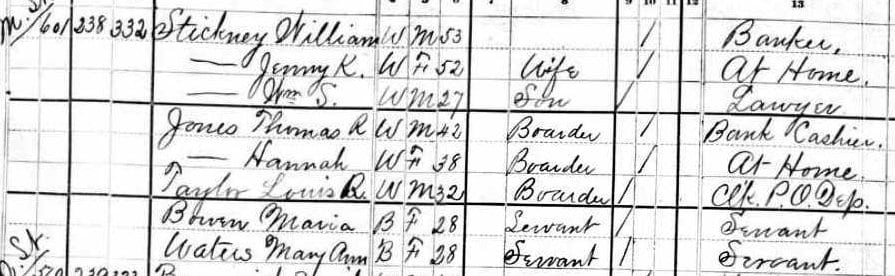 8 9 10 11 12 13
M. St. 601 238 332 Stickney William W M 53 / Banker.
— Jenny K. W F 52 Wife / At Home.
— Wm S. W M 27 Son / Lawyer
Jones Thomas R W M 42 Boarder / Bank Cashier.
— Hannah W F 38 Boarder / At Home.
Taylor Louis R. W M 32 Boarder / Clk. P.O. Dep.
Bowen Maria B F 28 Servant / Servant
St. Waters Mary Ann B F 28 Servant / Servant.